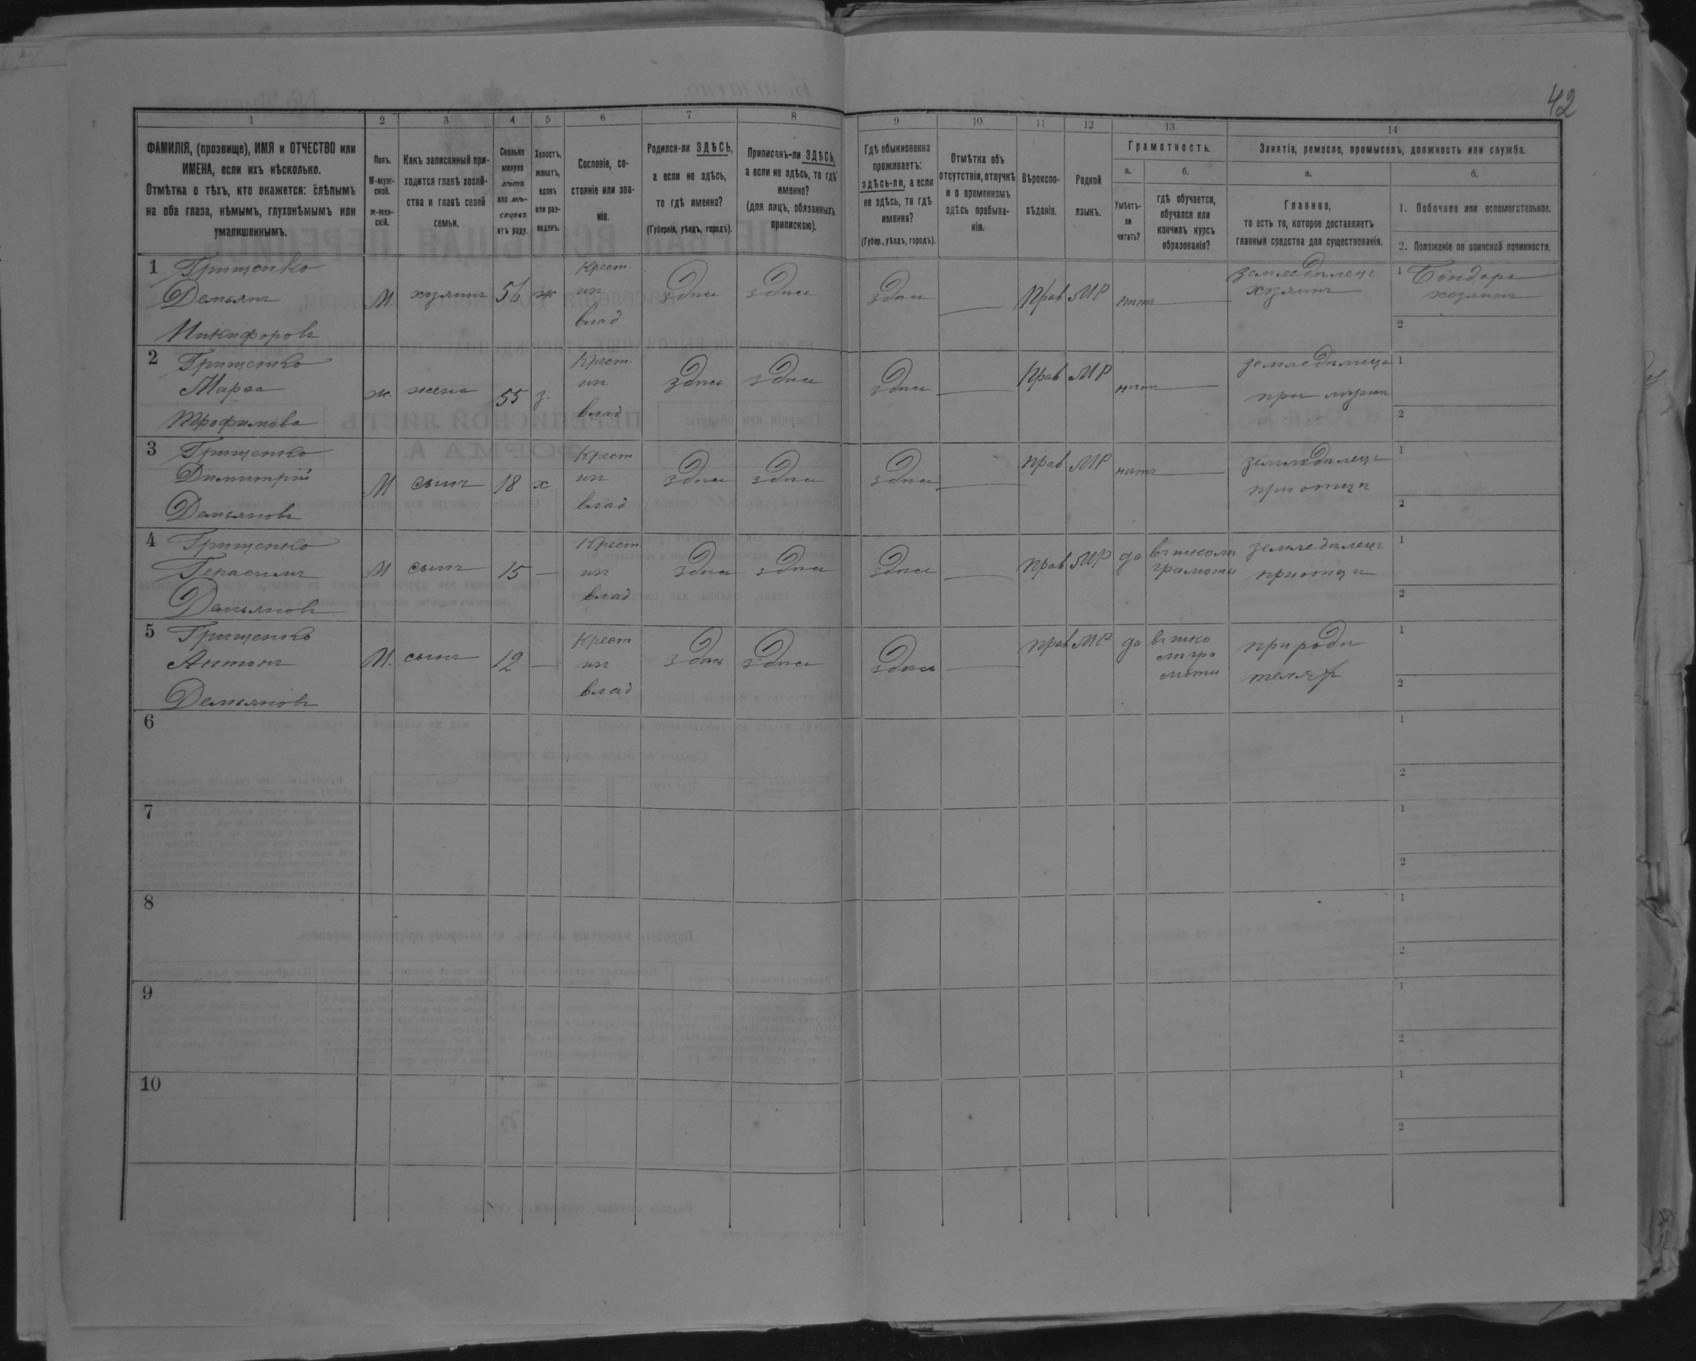 42
1 2 3 4 5 6 7 8 9 10 11 12 13 14
ФАМИЛІЯ, (прозвище), ИМЯ и ОТЧЕСТВО или
ИМЕНА, если ихъ нѣсколько.
Отмѣтка о тѣхъ, кто окажется: слѣпымъ
на оба глаза, нѣмымъ, глухонѣмымъ или
умалишеннымъ.
Полъ.
М-муж-
ской.
ж-жен-
скій.
Какъ записанный при-
ходится главѣ хозяй-
ства и главѣ своей
семьи.
Сколько
минуло
лѣтъ
или мѣ-
сяцевъ
отъ роду.
Холостъ,
женатъ,
вдовъ
или раз-
веденъ.
Сословіе, со-
стояніе или зва-
ніе.
Родился-ли ЗДѢСЬ,
а если не здѣсь,
то гдѣ именно?
(Губернія, уѣздъ, городъ).
Приписанъ-ли ЗДѢСЬ,
а если не здѣсь, то гдѣ
именно?
(для лицъ, обязанныхъ
припискою).
Гдѣ обыкновенно
проживаетъ:
здѣсь-ли, а если
не здѣсь, то гдѣ
именно?
(Губер., уѣздъ, городъ).
Отмѣтка объ
отсутствіи, отлучкѣ
и о временномъ
здѣсь пребыва-
ніи.
Вѣроиспо-
вѣданіе.
Родной
языкъ.
Грамотность.
а.
Умѣетъ-
ли
читать?
б.
гдѣ обучается,
обучался или
кончилъ курсъ
образованія?
Занятіе, ремесло, промыселъ, должность или служба.
а.
Главное,
то есть то, которое доставляетъ
главныя средства для существованія.
б.
1. Побочное или вспомогательное.
2. Положеніе по воинской повинности.
1 Грищенко
Демьянъ
Никифоровъ
М хозяинъ 56 ж
Крест.
из
влад
здись здись здись — Прав МР нитъ —
земледилецъ
хозяинъ
1 Бондарь
хозяинъ
2
2 Грищенко
Марѳа
Трофимова
ж. жена 55 з.
Крест.
из
влад
здись здись здись — Прав МР нитъ —
земледилеца
при мужи
1
2
3 Грищенко
Димитрій
Демьяновъ
М сынъ 18 х
Крест
из
влад
здись здись здись — прав МР нитъ —
земледилецъ
при отци
1
2
4 Грищенко
Герасимъ
Демьяновъ
М сынъ 15 —
Крест
из
влад
здись здись здись — прав МР да
въ школи
грамоты
земледилецъ
при отци
1
2
5 Грищенко
Антонъ
Демьяновъ
М. сынъ 12 —
Крест
из
влад
здись здись здись — прав МР да
въ шко
ли гра
моты
при роди
теляхъ
1
2
6
1
2
7
1
2
8
1
2
9
1
2
10
1
2